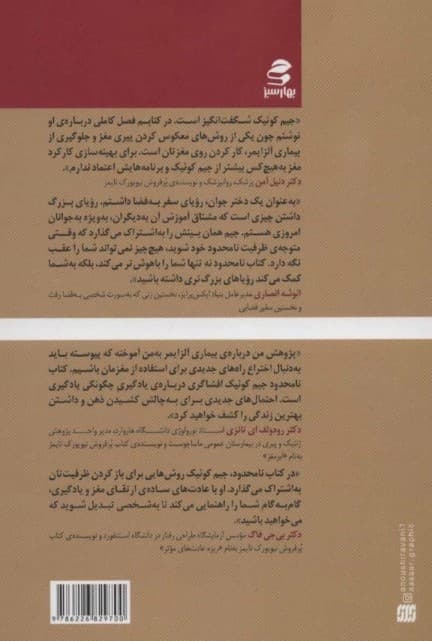 بهارسبز
«جیم کوئیک شگفت‌انگیز است. در کتابم فصل کاملی درباره‌ی او
نوشتم چون یکی از روش‌های معکوس کردن پیری مغز و جلوگیری از
بیماری آلزایمر، کار کردن روی مغزتان است. برای بهینه‌سازی کارکرد
مغز به‌هیچ‌کس بیشتر از جیم کوئیک و برنامه‌هایش اعتماد ندارم».
دکتر دنیل آمن پزشک، روانپزشک و نویسنده‌ی پُرفروش نیویورک تایمز
«به‌عنوان یک دختر جوان، رؤیای سفر به‌فضا داشتم. رؤیای بزرگ
داشتن چیزی است که مشتاق آموزش آن به‌دیگران، به‌ویژه به‌جوانان
امروزی هستم. جیم همان بینش را به‌اشتراک می‌گذارد که وقتی
متوجه‌ی ظرفیت نامحدود خود شوید، هیچ‌چیز نمی‌تواند شما را عقب
نگه دارد. کتاب نامحدود نه تنها شما را باهوش‌تر می‌کند، بلکه به‌شما
کمک می‌کند رؤیاهای بزرگ‌تری داشته باشید».
انوشه انصاری مدیرعامل بنیاد ایکس‌پرایز، نخستین زنی که به‌صورت شخصی به‌فضا رفت
و نخستین سفیر فضایی
«پژوهش من درباره‌ی بیماری آلزایمر به‌من آموخته که پیوسته باید
به‌دنبال اختراع راه‌های جدیدی برای استفاده از مغزمان باشیم. کتاب
نامحدود جیم کوئیک افشاگری درباره‌ی یادگیری چگونگی یادگیری
است. احتمال‌های جدیدی برای به‌چالش کشیدن ذهن و داشتن
بهترین زندگی را کشف خواهید کرد».
دکتر رودولف ای تانزی استاد نورولوژی دانشگاه هاروارد، مدیر واحد پژوهش
ژنتیک و پیری در بیمارستان عمومی ماساچوست و نویسنده‌ی کتاب پُرفروش نیویورک تایمز
به‌نام «ابرمغز»
«در کتاب نامحدود، جیم کوئیک روش‌هایی برای باز کردن ظرفیت‌تان
به‌اشتراک می‌گذارد. او با عادت‌های ساده‌ی ارتقای مغز و یادگیری،
گام‌به‌گام شما را راهنمایی می‌کند تا به‌شخصی تبدیل شوید که
می‌خواهید باشید».
دکتر بی‌جی فاگ مؤسس آزمایشگاه طراحی رفتار در دانشگاه استنفورد و نویسنده‌ی کتاب
پُرفروش نیویورک تایمز به‌نام «ریزه عادت‌های مؤثر»
9 786226 829700